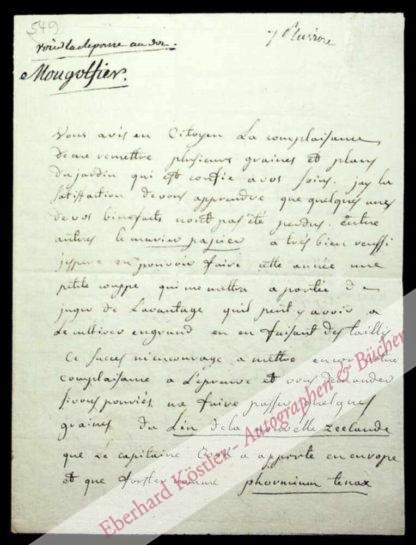 549
7 Pluviose
voir la reponse au dos.
Mongolfier.
Vous avés eu Citoyen La complaisance
de me remettre plusieurs graines et plans
du jardin qui est confie a vos soins. jay la
satisfaction de vous apprendre que quelques unes
de vos bienfaits n'ont pas été perdus. entre
autres le murier papier a trés bien reussi
j'espere en pouvoir faire cette année une
petite couppe qui me mettra a portée de
juger de Lavantage quil peut y avoir a
Le cultiver en grand en en faisant des taillis
Ce succes m'encourage a mettre encore votre
complaisance a L'epreuve et vous demander
si vous pouviés me faire passer quelques
graines du Lin de la nouvelle zeelande
que Le capitaine Cook a apporté en europe
et que forster nomme phormium tenax
Eberhard Köstler - Autographen & Bücher